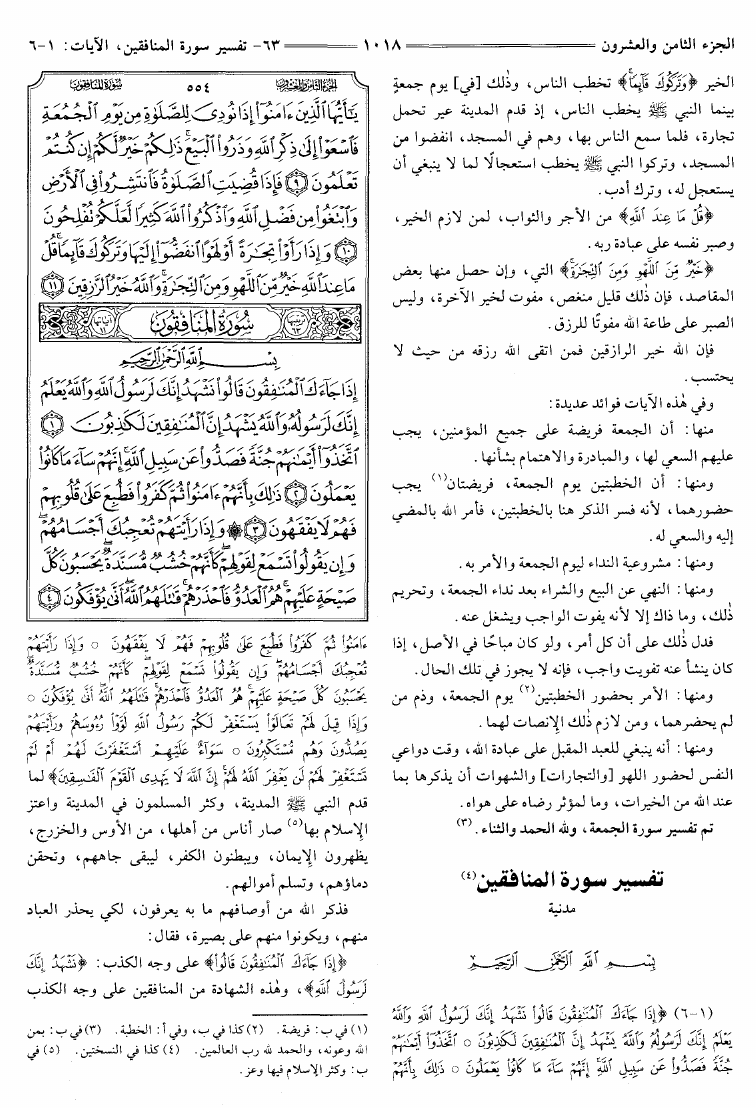 الجزء الثامن والعشرون
١٠١٨
٦٣- تفسير سورة المنافقين، الآيات: ١-٦
الخير ﴿وَتَرَكُوكَ قَآئِمٗا﴾ تخطب الناس، وذٰلك [في] يوم جمعةٍ
بينما النبي ﷺ يخطب الناس، إذ قدم المدينة عير تحمل
تجارة، فلما سمع الناس بها، وهم في المسجد، انفضوا من
المسجد، وتركوا النبي ﷺ يخطب استعجالًا لما لا ينبغي أن
يستعجل له، وترك أدب.
﴿قُلۡ مَا عِندَ ٱللَّهِ﴾ من الأجر والثواب، لمن لازم الخير،
وصبر نفسه على عبادة ربه.
﴿خَيۡرٞ مِّنَ ٱللَّهۡوِ وَمِنَ ٱلتِّجَٰرَةِ﴾ التي، وإن حصل منها بعض
المقاصد، فإن ذٰلك قليل منغص، مفوت لخير الآخرة، وليس
الصبر على طاعة الله مفوتًا للرزق.
فإن الله خير الرازقين فمن اتقى الله رزقه من حيث لا
يحتسب.
وفي هٰذه الآيات فوائد عديدة:
منها: أن الجمعة فريضة على جميع المؤمنين، يجب
عليهم السعي لها، والمبادرة والاهتمام بشأنها.
ومنها: أن الخطبتين يوم الجمعة، فريضتان(١) يجب
حضورهما، لأنه فسر الذكر هنا بالخطبتين، فأمر الله بالمضي
إليه والسعي له.
ومنها: مشروعية النداء ليوم الجمعة والأمر به.
ومنها: النهي عن البيع والشراء بعد نداء الجمعة، وتحريم
ذٰلك، وما ذاك إلا لأنه يفوت الواجب ويشغل عنه.
فدل ذٰلك على أن كل أمر، ولو كان مباحًا في الأصل، إذا
كان ينشأ عنه تفويت واجب، فإنه لا يجوز في تلك الحال.
ومنها: الأمر بحضور الخطبتين(٢) يوم الجمعة، وذم من
لم يحضرهما، ومن لازم ذٰلك الإنصات لهما.
ومنها: أنه ينبغي للعبد المقبل على عبادة الله، وقت دواعي
النفس لحضور اللهو [والتجارات] والشهوات أن يذكرها بما
عند الله من الخيرات، وما لمؤثر رضاه على هواه.
تم تفسير سورة الجمعة، ولله الحمد والثناء.(٣)
تفسير سورة المنافقين(٤)
مدنية
بِسۡمِ ٱللَّهِ ٱلرَّحۡمَٰنِ ٱلرَّحِيمِ
(١-٦) ﴿إِذَا جَآءَكَ ٱلۡمُنَٰفِقُونَ قَالُواْ نَشۡهَدُ إِنَّكَ لَرَسُولُ ٱللَّهِ وَٱللَّهُ
يَعۡلَمُ إِنَّكَ لَرَسُولُهُۥ وَٱللَّهُ يَشۡهَدُ إِنَّ ٱلۡمُنَٰفِقِينَ لَكَٰذِبُونَ ○ ٱتَّخَذُوٓاْ أَيۡمَٰنَهُمۡ
جُنَّةٗ فَصَدُّواْ عَن سَبِيلِ ٱللَّهِۚ إِنَّهُمۡ سَآءَ مَا كَانُواْ يَعۡمَلُونَ ○ ذَٰلِكَ بِأَنَّهُمۡ
الجزء الثامن والعشرون
٥٥٤
سورة المنافقون
يَٰٓأَيُّهَا ٱلَّذِينَ ءَامَنُوٓاْ إِذَا نُودِيَ لِلصَّلَوٰةِ مِن يَوۡمِ ٱلۡجُمُعَةِ
فَٱسۡعَوۡاْ إِلَىٰ ذِكۡرِ ٱللَّهِ وَذَرُواْ ٱلۡبَيۡعَۚ ذَٰلِكُمۡ خَيۡرٞ لَّكُمۡ إِن كُنتُمۡ
تَعۡلَمُونَ ٩ فَإِذَا قُضِيَتِ ٱلصَّلَوٰةُ فَٱنتَشِرُواْ فِي ٱلۡأَرۡضِ
وَٱبۡتَغُواْ مِن فَضۡلِ ٱللَّهِ وَٱذۡكُرُواْ ٱللَّهَ كَثِيرٗا لَّعَلَّكُمۡ تُفۡلِحُونَ
١٠ وَإِذَا رَأَوۡاْ تِجَٰرَةً أَوۡ لَهۡوًا ٱنفَضُّوٓاْ إِلَيۡهَا وَتَرَكُوكَ قَآئِمٗاۚ قُلۡ
مَا عِندَ ٱللَّهِ خَيۡرٞ مِّنَ ٱللَّهۡوِ وَمِنَ ٱلتِّجَٰرَةِۚ وَٱللَّهُ خَيۡرُ ٱلرَّٰزِقِينَ ١١
سُورَةُ المُنَافِقُونَ
بِسۡمِ ٱللَّهِ ٱلرَّحۡمَٰنِ ٱلرَّحِيمِ
إِذَا جَآءَكَ ٱلۡمُنَٰفِقُونَ قَالُواْ نَشۡهَدُ إِنَّكَ لَرَسُولُ ٱللَّهِۗ وَٱللَّهُ يَعۡلَمُ
إِنَّكَ لَرَسُولُهُۥ وَٱللَّهُ يَشۡهَدُ إِنَّ ٱلۡمُنَٰفِقِينَ لَكَٰذِبُونَ ١
ٱتَّخَذُوٓاْ أَيۡمَٰنَهُمۡ جُنَّةٗ فَصَدُّواْ عَن سَبِيلِ ٱللَّهِۚ إِنَّهُمۡ سَآءَ مَا كَانُواْ
يَعۡمَلُونَ ٢ ذَٰلِكَ بِأَنَّهُمۡ ءَامَنُواْ ثُمَّ كَفَرُواْ فَطُبِعَ عَلَىٰ قُلُوبِهِمۡ
فَهُمۡ لَا يَفۡقَهُونَ ٣ ۞ وَإِذَا رَأَيۡتَهُمۡ تُعۡجِبُكَ أَجۡسَامُهُمۡۖ
وَإِن يَقُولُواْ تَسۡمَعۡ لِقَوۡلِهِمۡۖ كَأَنَّهُمۡ خُشُبٞ مُّسَنَّدَةٞۖ يَحۡسَبُونَ كُلَّ
صَيۡحَةٍ عَلَيۡهِمۡۚ هُمُ ٱلۡعَدُوُّ فَٱحۡذَرۡهُمۡۚ قَٰتَلَهُمُ ٱللَّهُۖ أَنَّىٰ يُؤۡفَكُونَ ٤
ءَامَنُواْ ثُمَّ كَفَرُواْ فَطُبِعَ عَلَىٰ قُلُوبِهِمۡ فَهُمۡ لَا يَفۡقَهُونَ ○ وَإِذَا رَأَيۡتَهُمۡ
تُعۡجِبُكَ أَجۡسَامُهُمۡۖ وَإِن يَقُولُواْ تَسۡمَعۡ لِقَوۡلِهِمۡۖ كَأَنَّهُمۡ خُشُبٞ مُّسَنَّدَةٞۖ
يَحۡسَبُونَ كُلَّ صَيۡحَةٍ عَلَيۡهِمۡۚ هُمُ ٱلۡعَدُوُّ فَٱحۡذَرۡهُمۡۚ قَٰتَلَهُمُ ٱللَّهُۖ أَنَّىٰ يُؤۡفَكُونَ ○
وَإِذَا قِيلَ لَهُمۡ تَعَالَوۡاْ يَسۡتَغۡفِرۡ لَكُمۡ رَسُولُ ٱللَّهِ لَوَّوۡاْ رُءُوسَهُمۡ وَرَأَيۡتَهُمۡ
يَصُدُّونَ وَهُم مُّسۡتَكۡبِرُونَ ○ سَوَآءٌ عَلَيۡهِمۡ أَسۡتَغۡفَرۡتَ لَهُمۡ أَمۡ لَمۡ
تَسۡتَغۡفِرۡ لَهُمۡ لَن يَغۡفِرَ ٱللَّهُ لَهُمۡۚ إِنَّ ٱللَّهَ لَا يَهۡدِي ٱلۡقَوۡمَ ٱلۡفَٰسِقِينَ﴾ لما
قدم النبي ﷺ المدينة، وكثر المسلمون في المدينة واعتز
الإسلام بها(٥) صار أناس من أهلها، من الأوس والخزرج،
يظهرون الإيمان، ويبطنون الكفر، ليبقى جاههم، وتحقن
دماؤهم، وتسلم أموالهم.
فذكر الله من أوصافهم ما به يعرفون، لكي يحذر العباد
منهم، ويكونوا منهم على بصيرة، فقال:
﴿إِذَا جَآءَكَ ٱلۡمُنَٰفِقُونَ قَالُواْ﴾ على وجه الكذب: ﴿نَشۡهَدُ إِنَّكَ
لَرَسُولُ ٱللَّهِ﴾، وهٰذه الشهادة من المنافقين على وجه الكذب
(١) في ب: فريضة. (٢) كذا في ب، وفي أ: الخطبة. (٣) في ب: بمن
الله وعونه، والحمد لله رب العالمين. (٤) كذا في النسختين. (٥) في
ب: وكثر الإسلام فيها وعز.